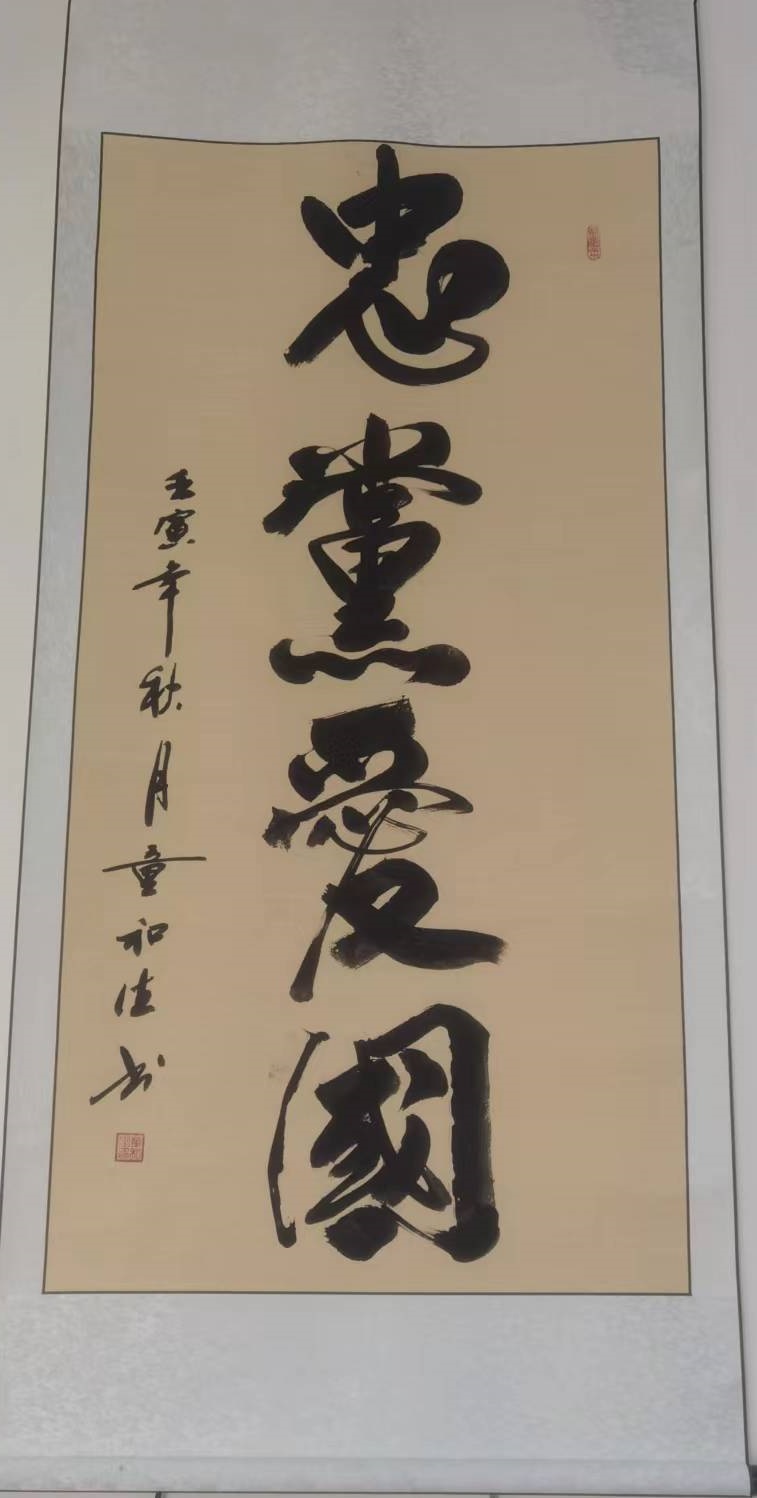 忠黨愛國
壬寅年秋月童和佳书